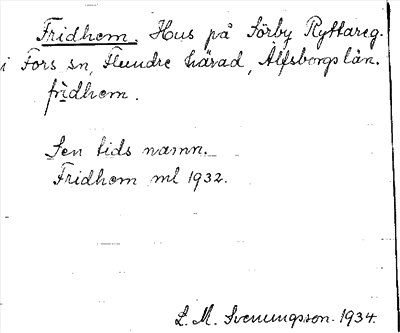 Fridhem. Hus på Sörby Ryttareg.
i Fors sn, Flundre härad, Älfsborgs län.
frìdhem.
Sen tids namn.
Fridhem ml 1932.
L. M. Svenungsson. 1934